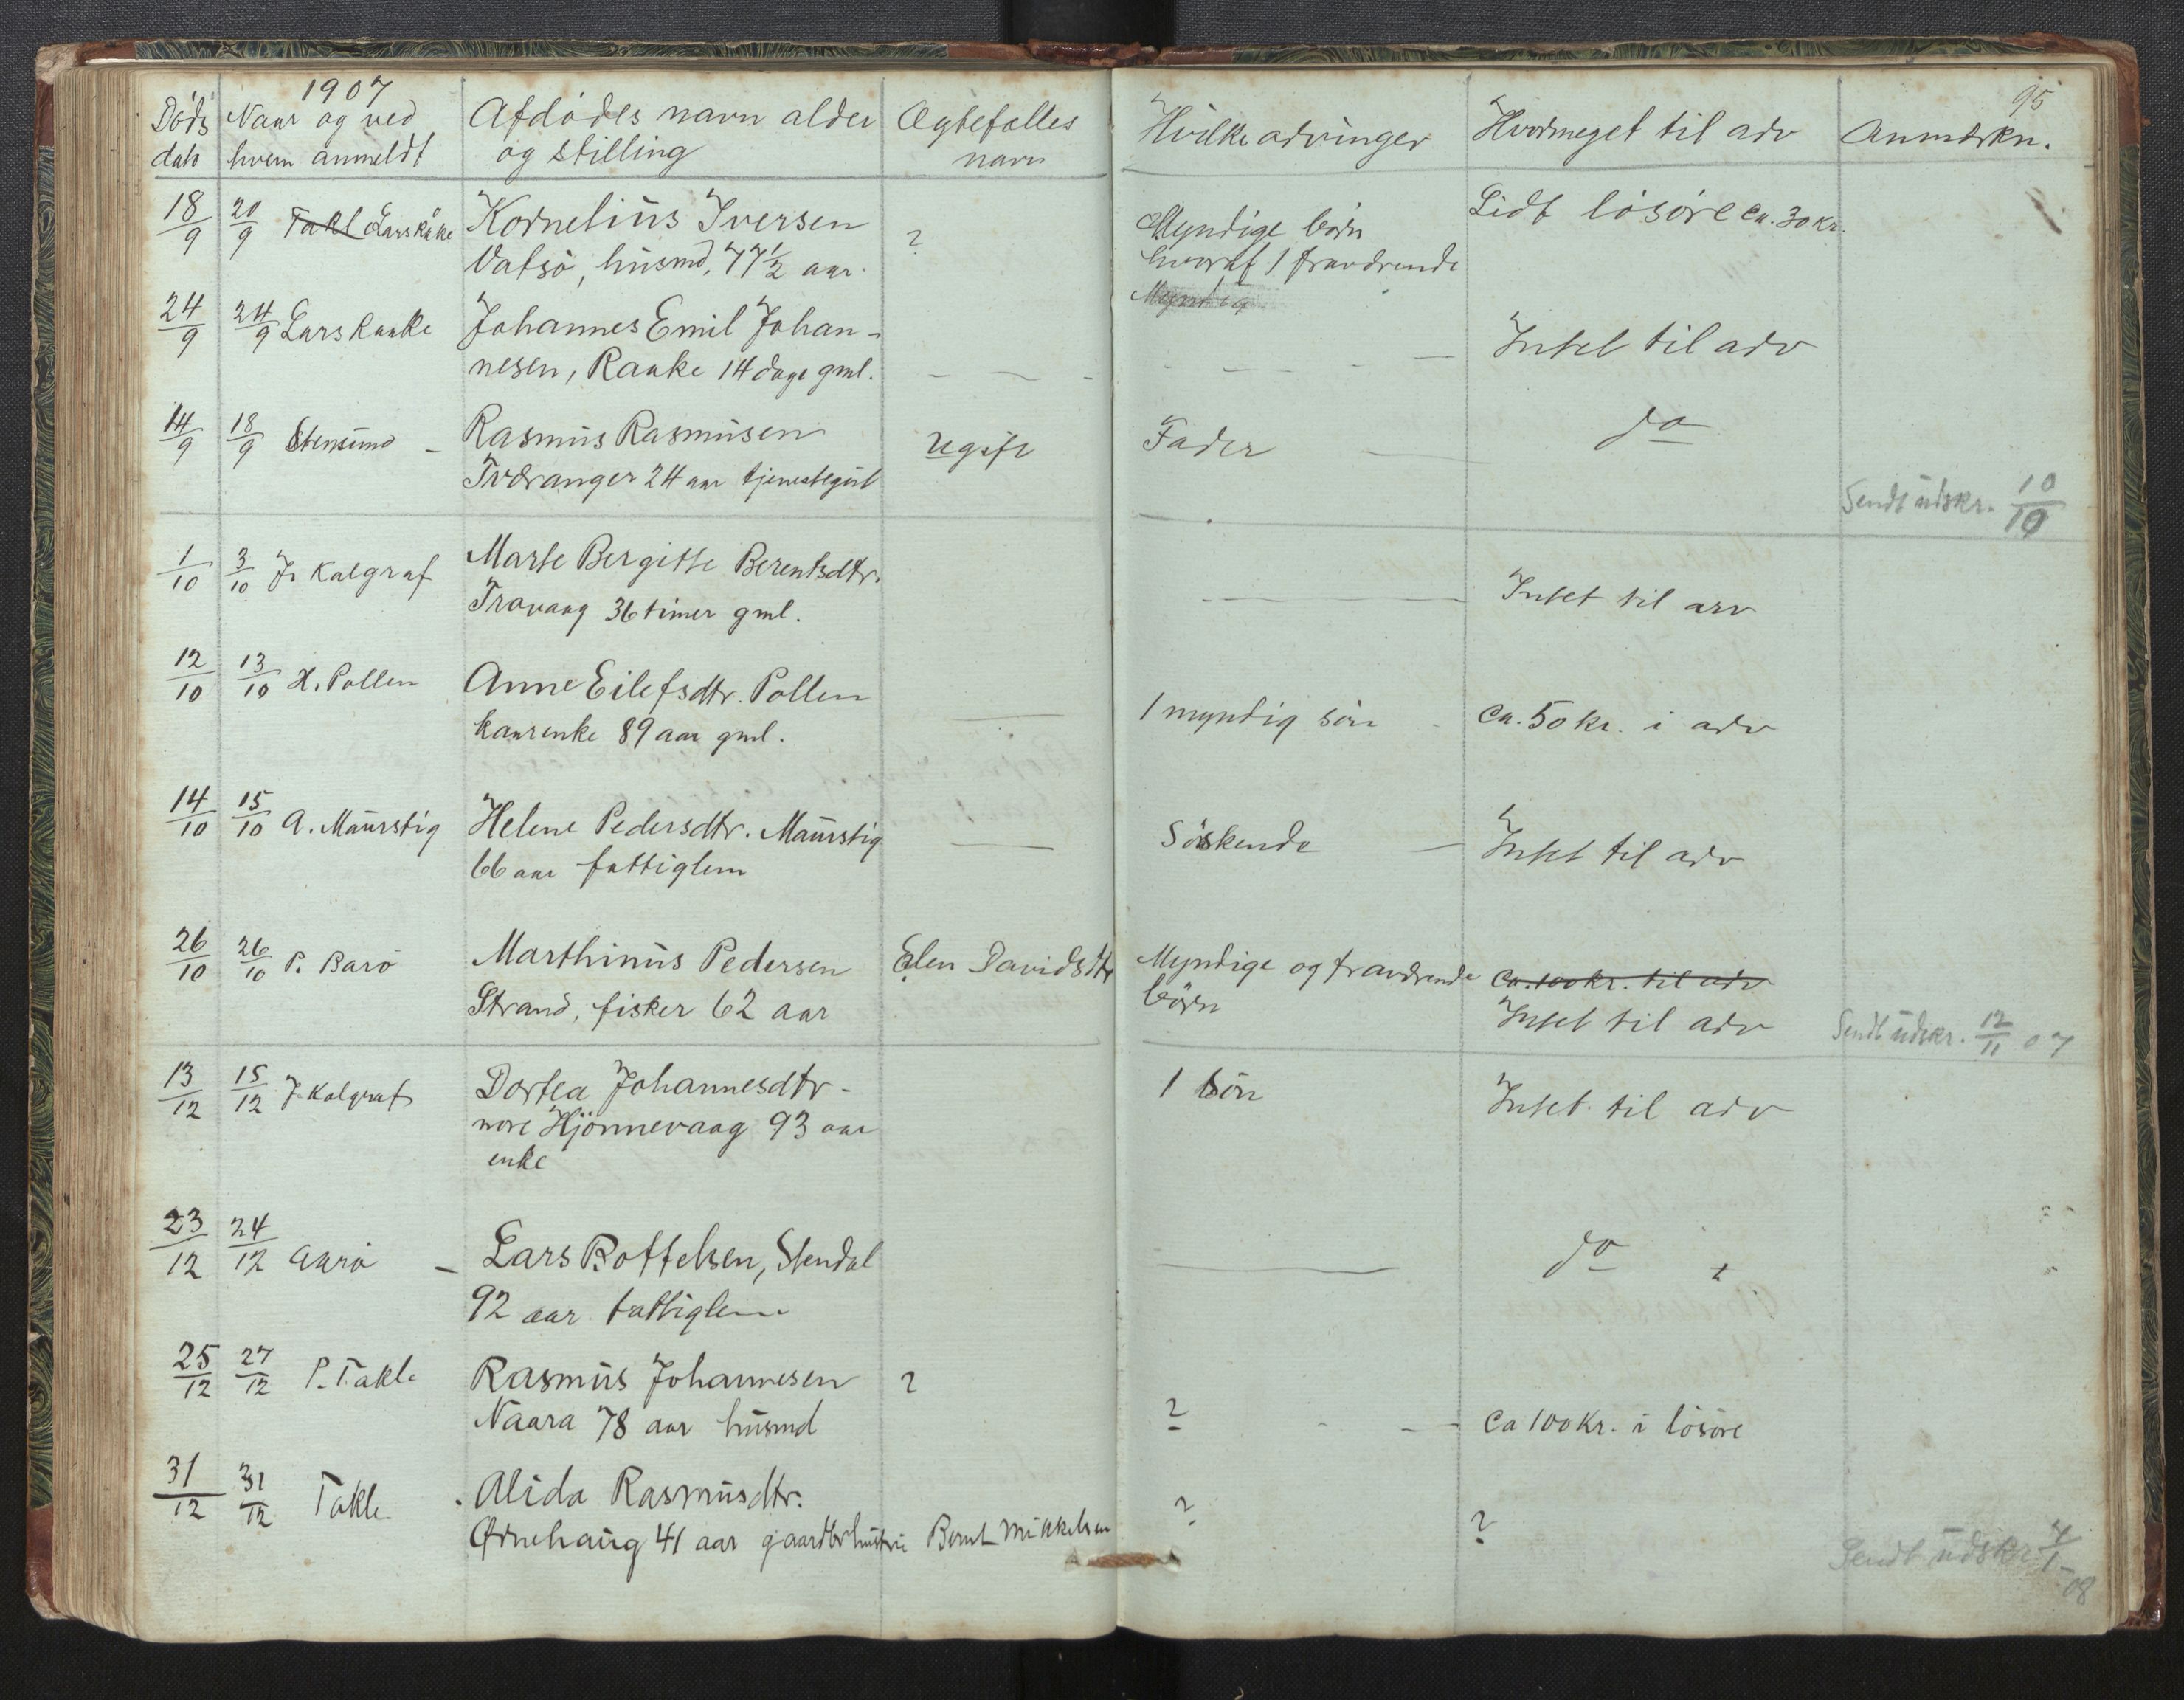 1907
95
Döds Naar og ved Afdödes navn alder Ægtefelles Hvilke arvinger Hvormeget til arv Anmærkn.
dato hvem anmeldt og stilling navn
18/9 20/9 Takl Lars Raake Kornelius Iversen ? Myndige börn Lidt lösöre ca. 30 kr.
Vatsö, husmd, 77½ aar. hvoraf 1 fraværende
Myndig
24/9 24/9 Lars Raake Johannes Emil Johan- Intet til arv
nesen, Raake 14 dage gml.
14/9 18/9 Stensund - Rasmus Rasmusen Ugift Fader do
Tværanger 24 aar tjenestegut
Sendt udskr. 10/10
1/10 3/10 J. Kalgraf Marte Bergitte Berentsdtr.
Travaag 36 timer gml. Intet til arv
12/10 13/10 H. Pollen Anne Eilefsdtr. Pollen
kaarenke 89 aar gml. 1 myndig sön - ca. 50 kr. i arv
14/10 15/10 A. Maurstig Helene Pedersdtr. Maurstig Söskende - Intet til arv
66 aar fattiglem
26/10 26/10 P. Barö Marthinus Pedersen Elen Davidsdtr Myndige og fraværende ca. 100 kr. til arv
Strand, fisker 62 aar börn Intet til arv Sendt udskr. 12/11 07
13/12 15/12 J. Kalgraf Dortea Johannesdtr - 1 sön Intet til arv
nore Hjönnevaag 93 aar
enke
23/12 24/12 Aarö - Lars Bottelsen, Stendal do
92 aar fattiglem
25/12 27/12 P. Takle Rasmus Johannesen ?
Naara 78 aar husmd ? - - - ca 100 kr. i lösöre
31/12 31/12 Takle. Alida Rasmusdtr. ? ?
Ørnehaug 41 aar gaardbrhustru Bernt Mikkelsen
Sendt udskr 4/1-08